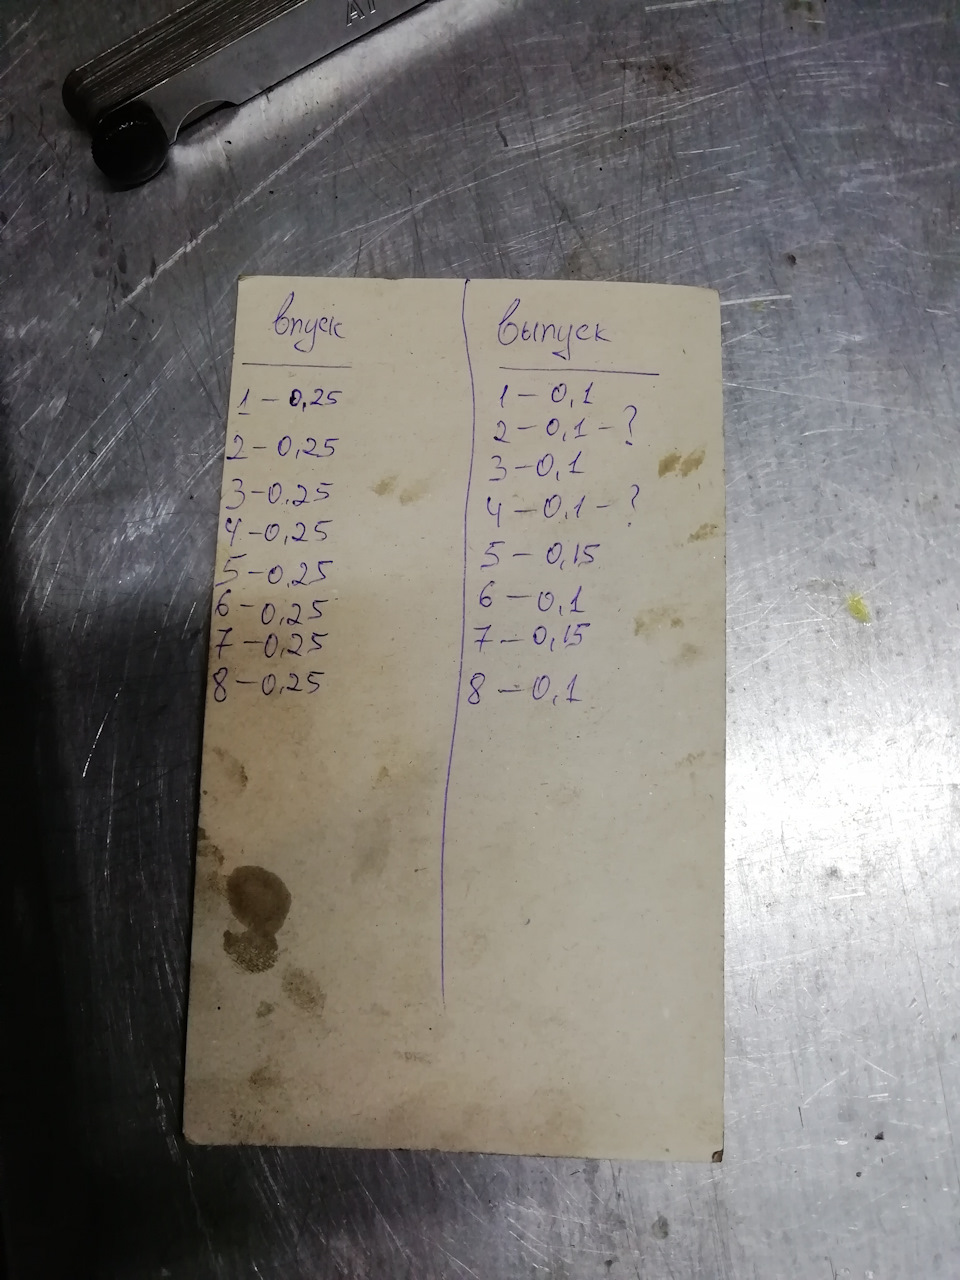 впуск
1 - 0,25
2 - 0,25
3 - 0,25
4 - 0,25
5 - 0,25
6 - 0,25
7 - 0,25
8 - 0,25
выпуск
1 - 0,1
2 - 0,1 - ?
3 - 0,1
4 - 0,1 - ?
5 - 0,15
6 - 0,1
7 - 0,15
8 - 0,1